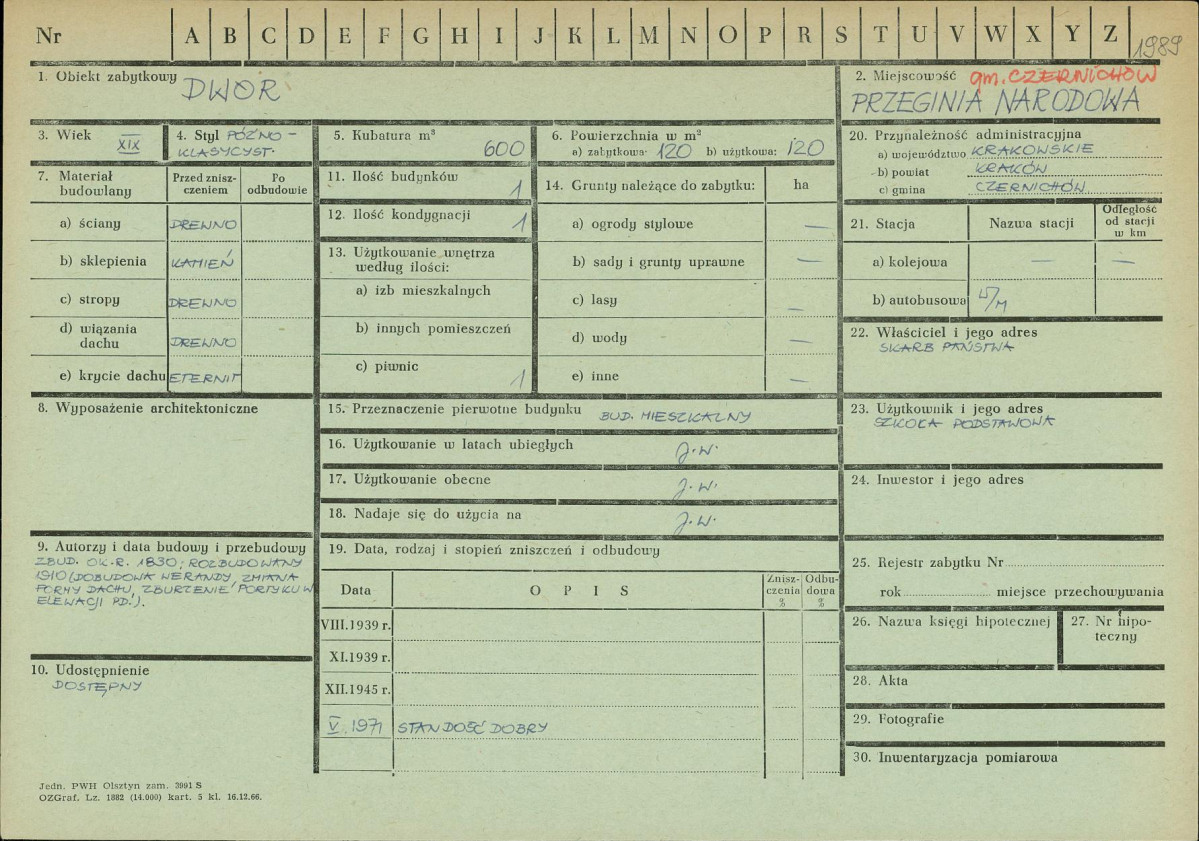 Nr A B C D E F G H I J K L M N O P R S T U V W X Y Z 1989
1. Obiekt zabytkowy DWÓR
2. Miejscowość gm. CZERNICHÓW
PRZEGINIA NARODOWA
3. Wiek XIX
4. Styl PÓŹNO-
KLASYCYST.
5. Kubatura m³ 600
6. Powierzchnia w m²
a) zabytkowa: 120 b) użytkowa: 120
7. Materiał budowlany
Przed zniszczeniem
Po odbudowie
a) ściany DREWNO
b) sklepienia KAMIEŃ
c) stropy DREWNO
d) wiązania dachu DREWNO
e) krycie dachu ETERNIT
8. Wyposażenie architektoniczne
9. Autorzy i data budowy i przebudowy
ZBUD. OK. R. 1830; ROZBUDOWANY
1910 (DOBUDOWA WERANDY, ZMIANA
FORMY DACHU, ZBURZENIE PORTYKU W
ELEWACJI PD.).
10. Udostępnienie
DOSTĘPNY
11. Ilość budynków 1
12. Ilość kondygnacji 1
13. Użytkowanie wnętrza
według ilości:
a) izb mieszkalnych
b) innych pomieszczeń
c) piwnic 1
14. Grunty należące do zabytku: ha
a) ogrody stylowe —
b) sady i grunty uprawne —
c) lasy —
d) wody —
e) inne —
15. Przeznaczenie pierwotne budynku BUD. MIESZKALNY
16. Użytkowanie w latach ubiegłych J.W.
17. Użytkowanie obecne J.W.
18. Nadaje się do użycia na J.W.
19. Data, rodzaj i stopień zniszczeń i odbudowy
Data OPIS Zniszczenia % Odbudowa %
VIII.1939 r.
XI.1939 r.
XII.1945 r.
V. 1971 STAN DOŚĆ DOBRY
20. Przynależność administracyjna
a) województwo KRAKOWSKIE
b) powiat KRAKÓW
c) gmina CZERNICHÓW
21. Stacja Nazwa stacji Odległość od stacji w km
a) kolejowa — —
b) autobusowa W/M
22. Właściciel i jego adres
SKARB PAŃSTWA
23. Użytkownik i jego adres
SZKOŁA PODSTAWOWA
24. Inwestor i jego adres
25. Rejestr zabytku Nr
rok miejsce przechowywania
26. Nazwa księgi hipotecznej
27. Nr hipoteczny
28. Akta
29. Fotografie
30. Inwentaryzacja pomiarowa
Jedn. PWH Olsztyn zam. 3991 S
OZGraf. Lz. 1882 (14.000) kart. 5 kl. 16.12.66.